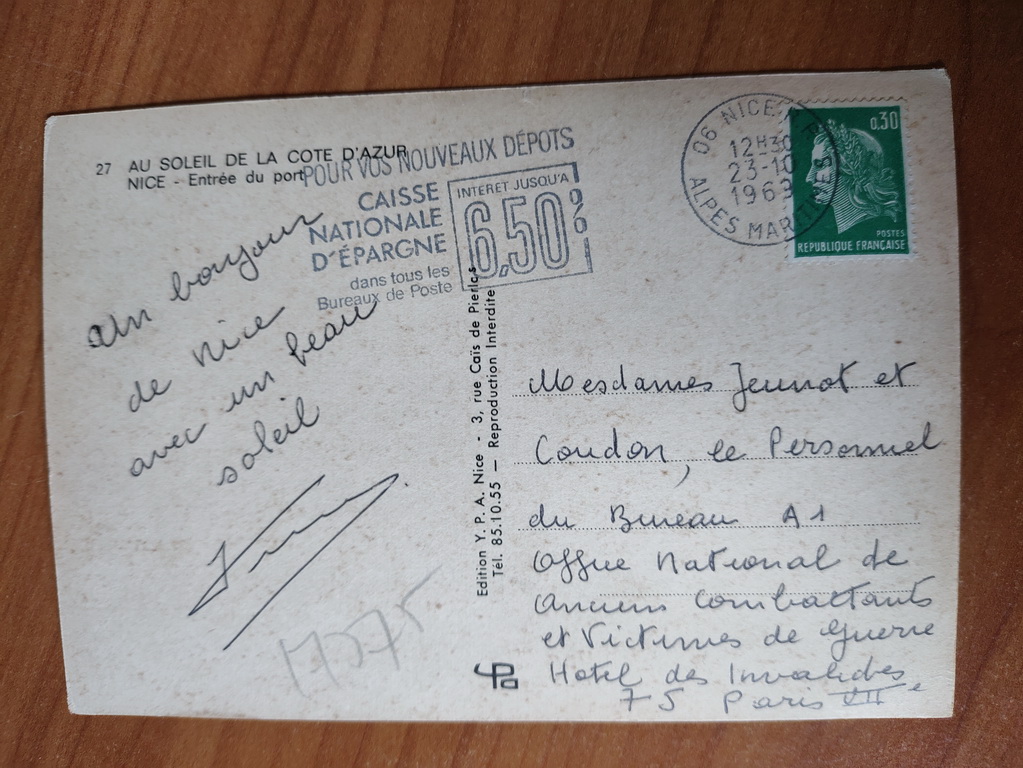 27 AU SOLEIL DE LA COTE D'AZUR
NICE - Entrée du port
POUR VOS NOUVEAUX DÉPOTS
CAISSE
NATIONALE
D'ÉPARGNE
dans tous les
Bureaux de Poste
INTERET JUSQU'A
6,50%
06 NICE R.P.
12H30
23-10
1969
ALPES MARITIMES
0,30
POSTES
REPUBLIQUE FRANÇAISE
Un bonjour
de Nice
avec un beau
soleil
Edition Y. P. A. Nice - 3, rue Caïs de Pierlas
Tél. 85.10.55 — Reproduction Interdite
Mesdames Jeunot et
Coudon, le Personnel
du Bureau A1
Office National de
Anciens Combattants
et Victimes de Guerre
Hotel des Invalides
75 Paris VIIe